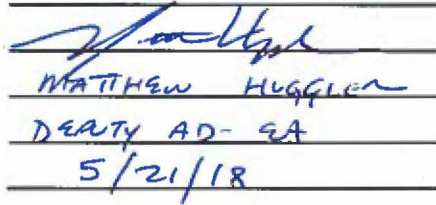 MATTHEW HUGGLER
DEPUTY AD- EA
5/21/18